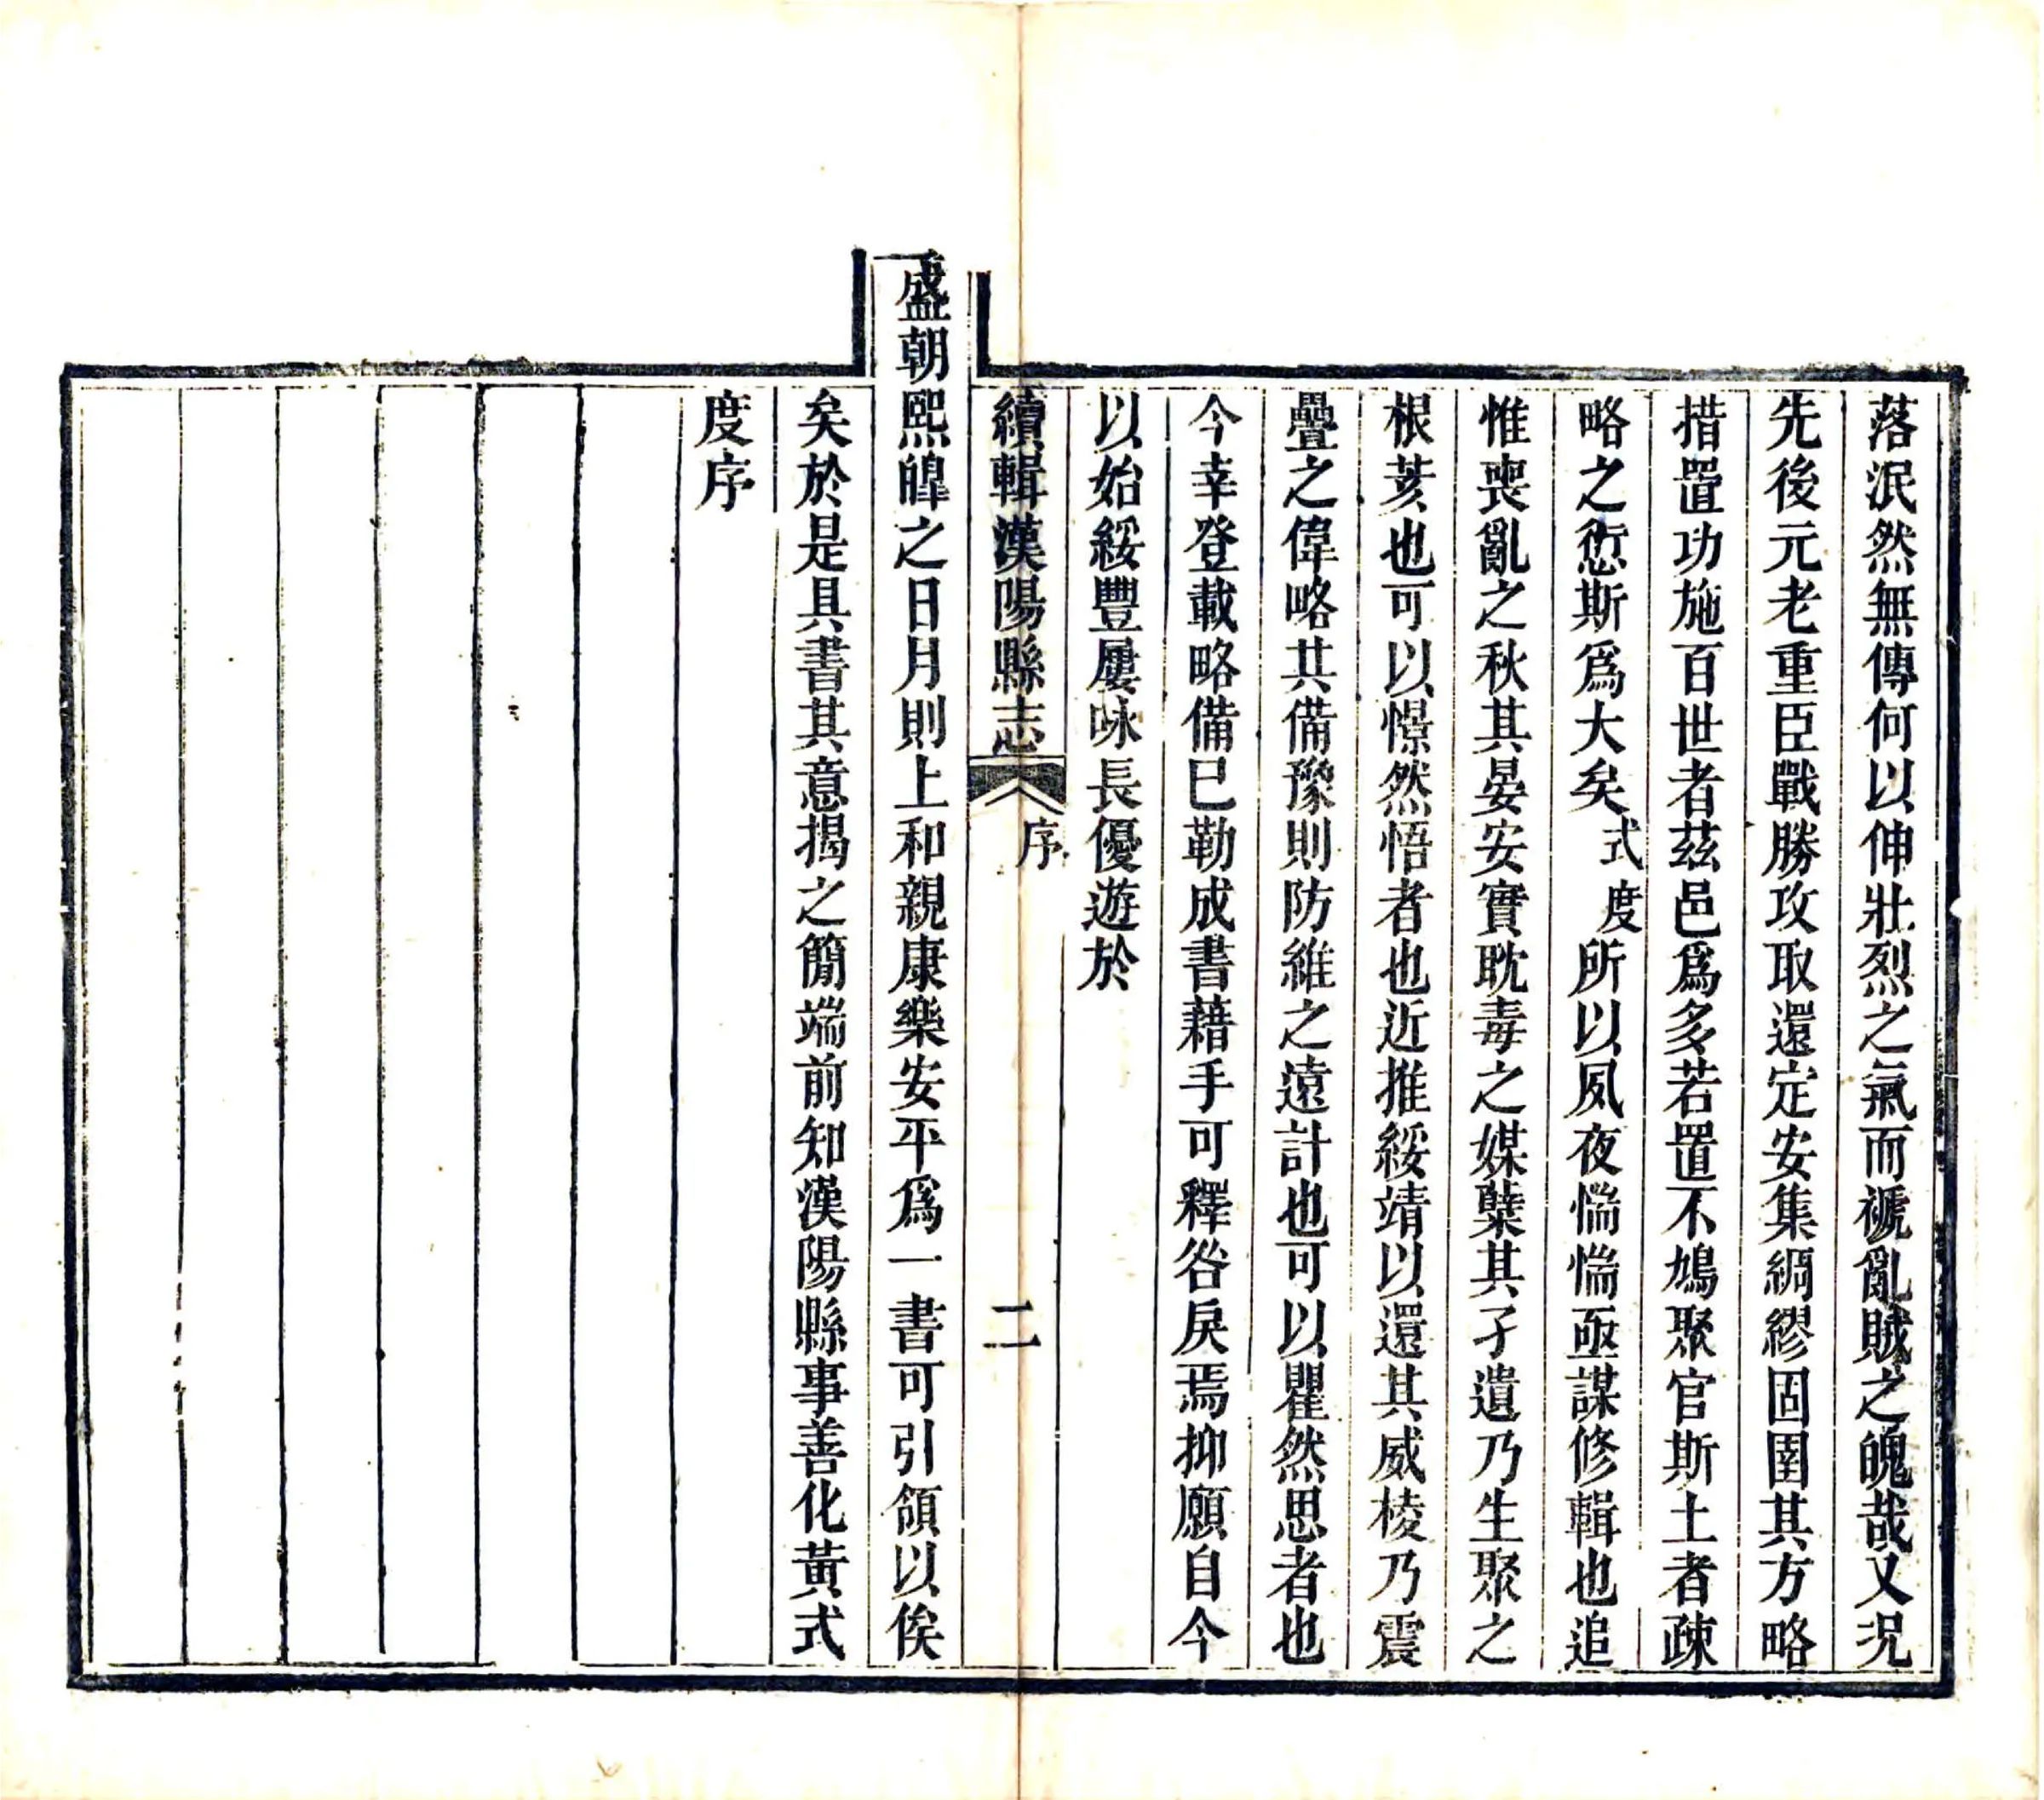 落泯然無傳何以伸壯烈之氣而褫亂賊之魄哉又況
先後元老重臣戰勝攻取還定安集綢繆固圉其方略
措置功施百世者茲邑爲多若置不鳩聚官斯土者疎
略之愆斯爲大矣式度所以夙夜惴惴亟謀修輯也追
惟喪亂之秋其晏安實耽毒之媒櫱其孑遺乃生聚之
根荄也可以憬然悟者也近推綏靖以還其威棱乃震
疊之偉略其備豫則防維之遠計也可以瞿然思者也
今幸登載略備已勒成書藉手可釋咎戾焉抑願自今
以始綏豐屢咏長優遊於
續輯漢陽縣志 序 二
盛朝熙皥之日月則上和親康樂安平爲一書可引領以俟
矣於是具書其意揭之簡端前知漢陽縣事善化黃式
度序